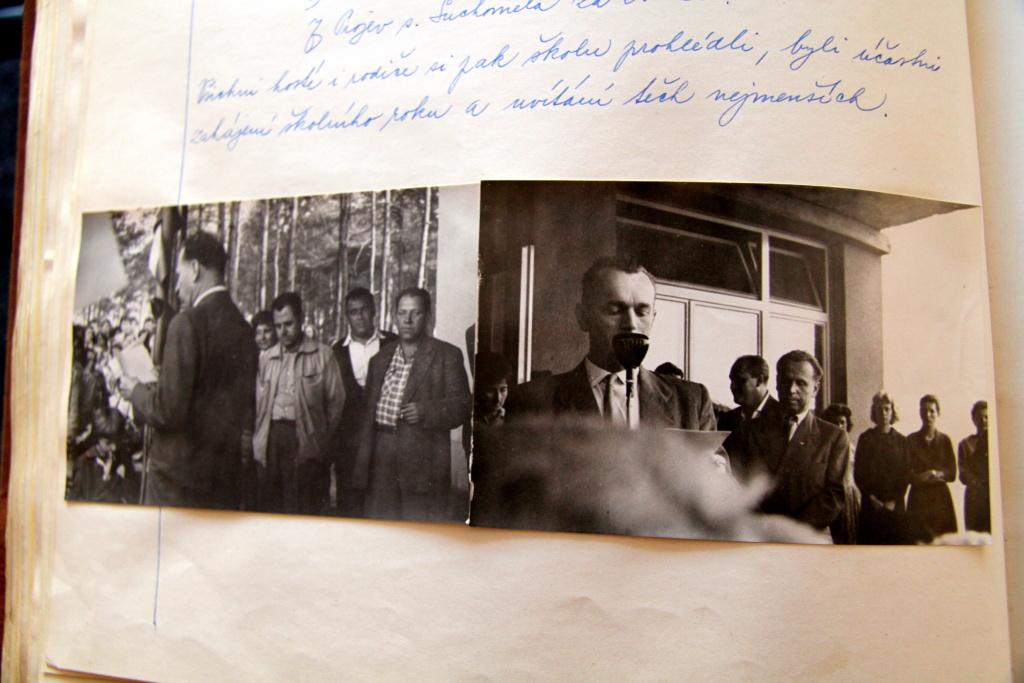 p. Suchomela za
Všichni hosté i rodiče si pak školu prohlédli, byli účastni
zahájení školního roku a uvítání těch nejmenších.